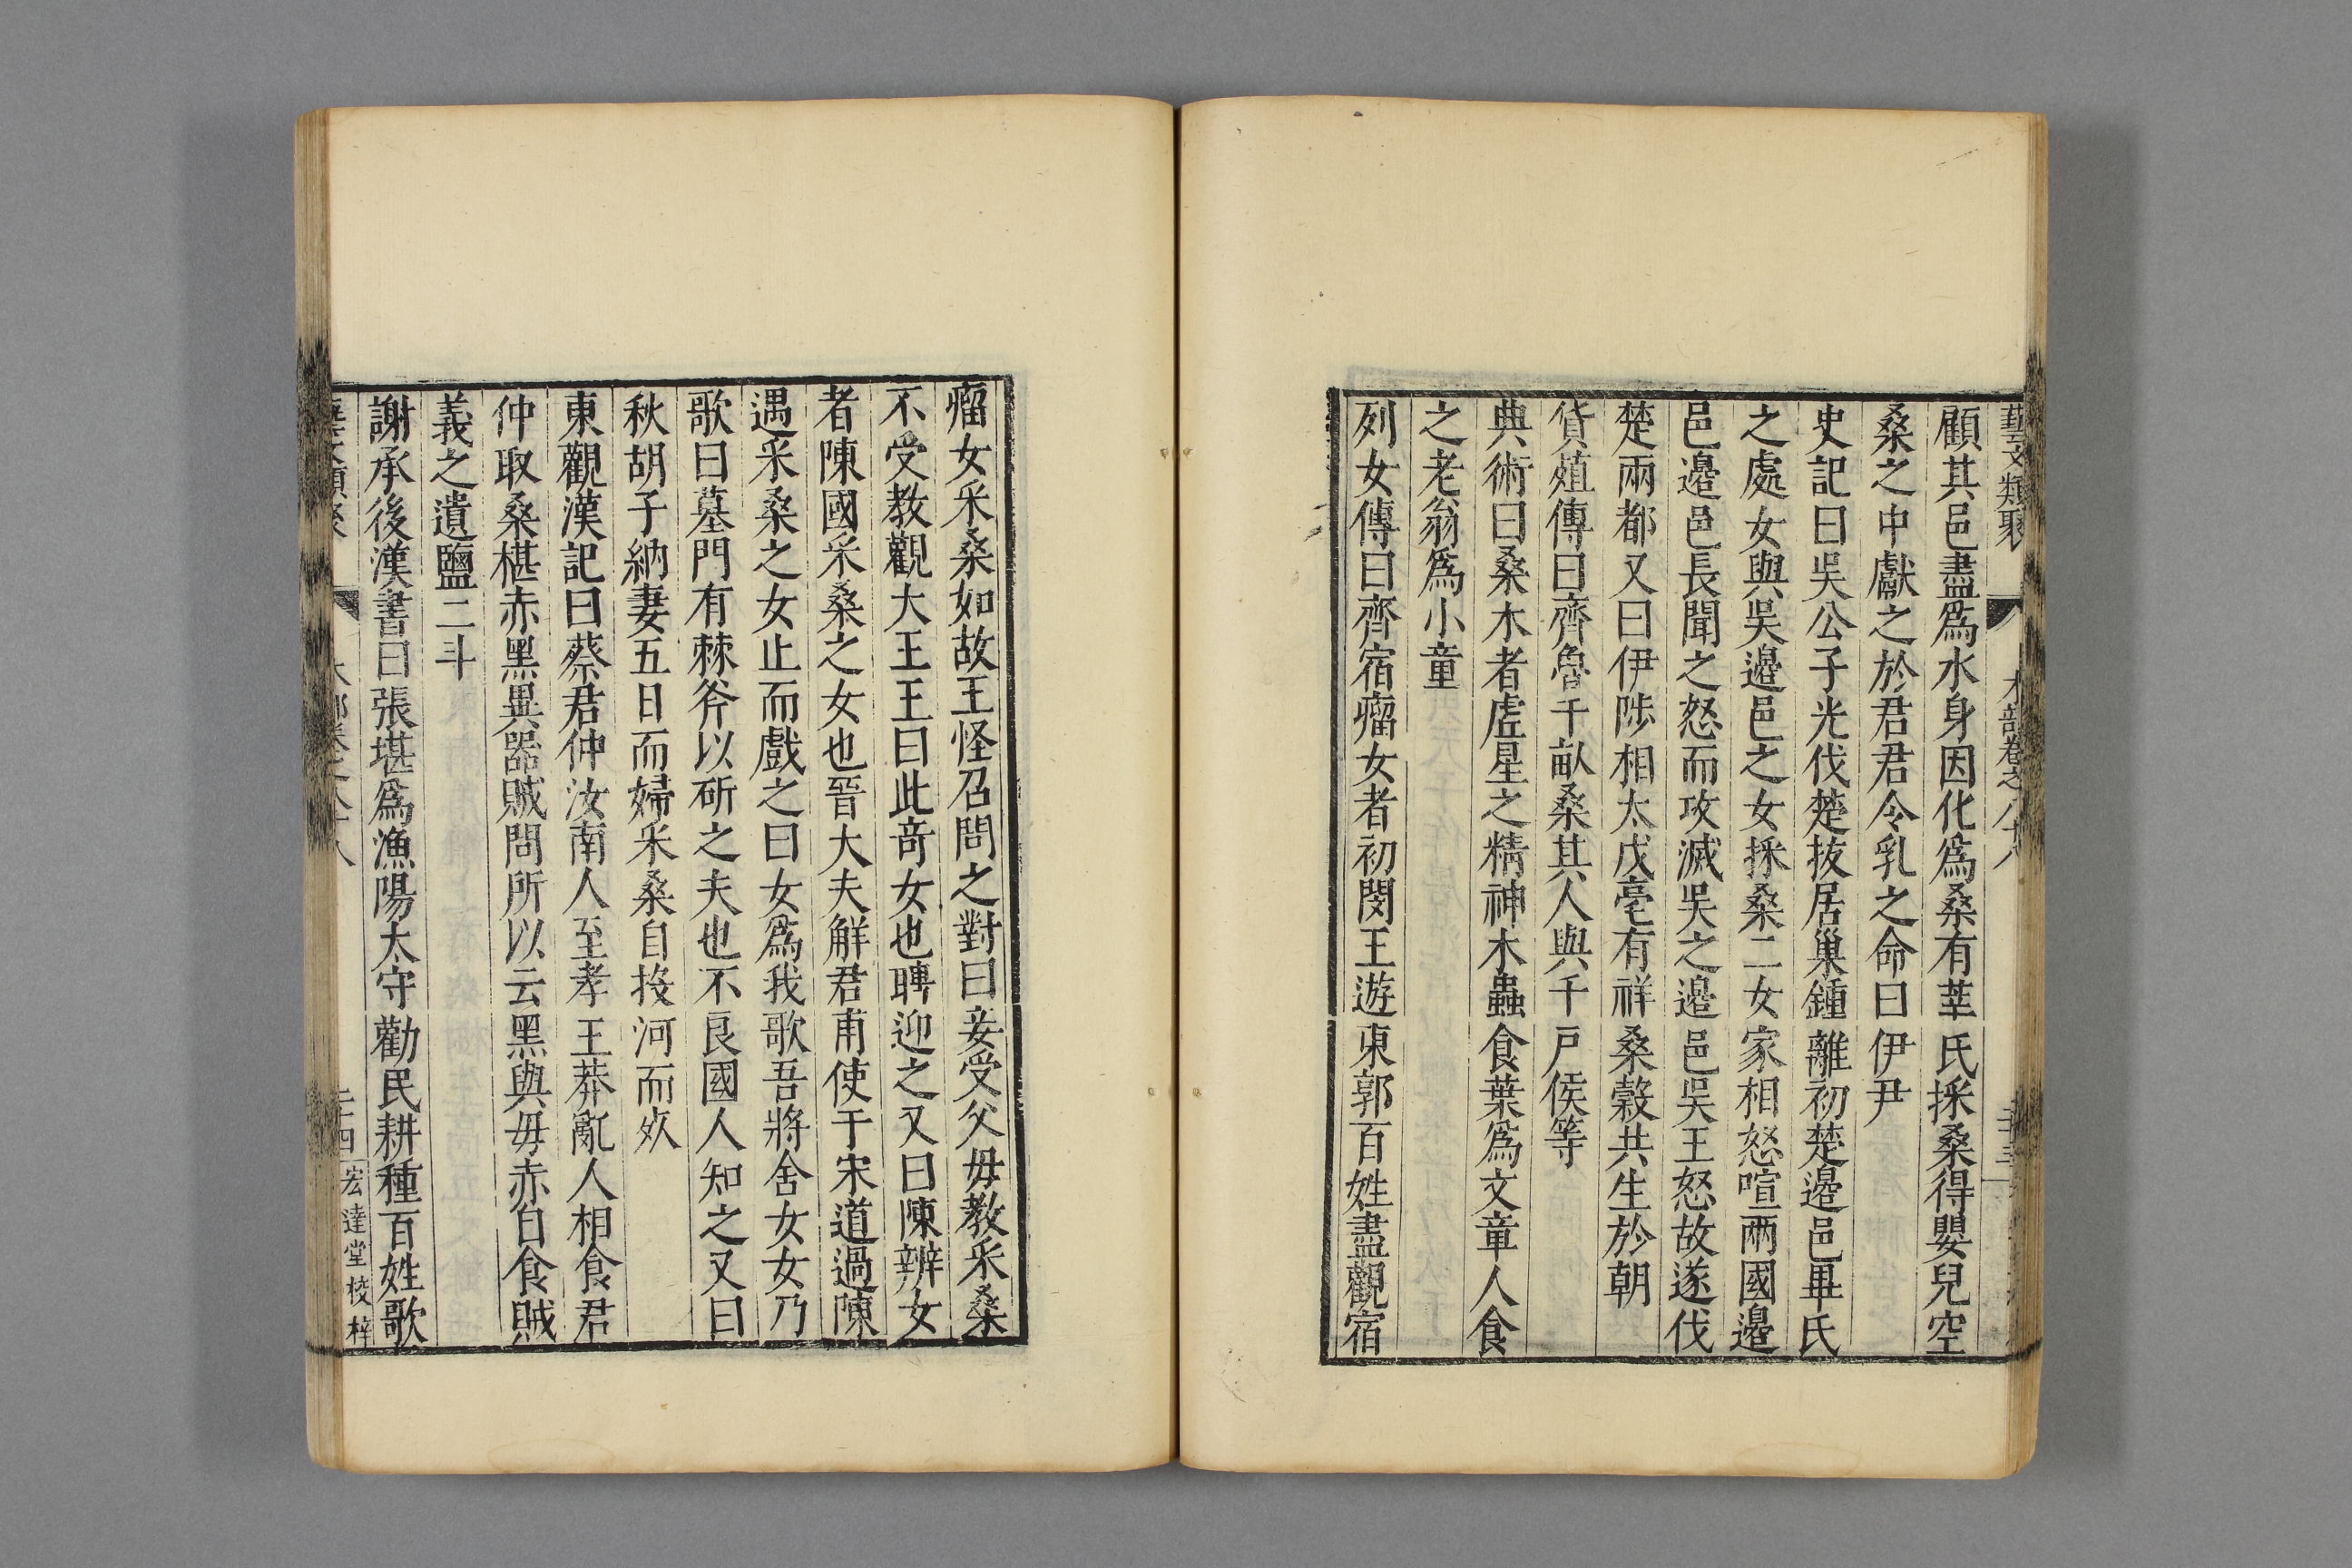 藝文類聚 木部卷之八十八
顧其邑盡爲水身因化爲桑有莘氏採桑得嬰兒空
桑之中獻之於君君令乳之命曰伊尹
史記曰吳公子光伐楚拔居巢鍾離初楚邊邑畢氏
之處女與吳邊邑之女採桑二女家相怒喧兩國邊
邑邊邑長聞之怒而攻滅吳之邊邑吳王怒故遂伐
楚兩都又曰伊陟相太戊亳有祥桑榖共生於朝
貨殖傳曰齊魯千畝桑其人與千戸侯等
典術曰桑木者虛星之精神木蟲食葉爲文章人食
之老翁爲小童
列女傳曰齊宿瘤女者初閔王遊東郭百姓盡觀宿
瘤女采桑如故王怪召問之對曰妾受父毋教采桑
不受教觀大王王曰此奇女也聘迎之又曰陳辨女
者陳國采桑之女也晉大夫解君甫使于宋道過陳
遇采桑之女止而戲之曰女爲我歌吾將舍女女乃
歌曰墓門有棘斧以斫之夫也不良國人知之又曰
秋胡子納妻五日而婦采桑自投河而死
東觀漢記曰蔡君仲汝南人至孝王莽亂人相食君
仲取桑椹赤黑異器賊問所以云黑與毋赤自食賊
義之遺鹽二斗
謝承後漢書曰張堪爲漁陽太守勸民耕種百姓歌
二十四 宏達堂校梓